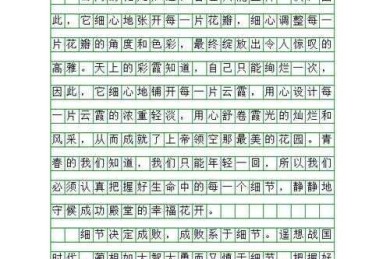 此，它细心地张开每一片花瓣，细心调整每一
片花瓣的角度和色彩，最终绽放出令人惊叹的
高雅。天上的彩霞知道，自己只能绚烂一次，
因此，它细心地铺开每一片云霞，用心设计每
一片云霞的浓重轻淡，用心舒卷霞光的灿烂和
风采，从而成就了上帝领空那最美的花园。青
春的我们知道，我们只能年轻一回，所以我们
必须认真把握好生命中的每一个细节，静静地
守候成功殿堂的幸福花开。
细节决定成败，成败系于细节。遥想战国
时代，蔺相如大智大勇而又慎于细节，把